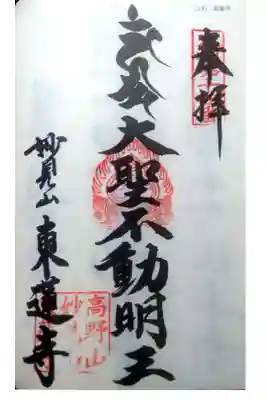 奉拝
大聖不動明王
妙見山 東蓮寺
高野山
妙